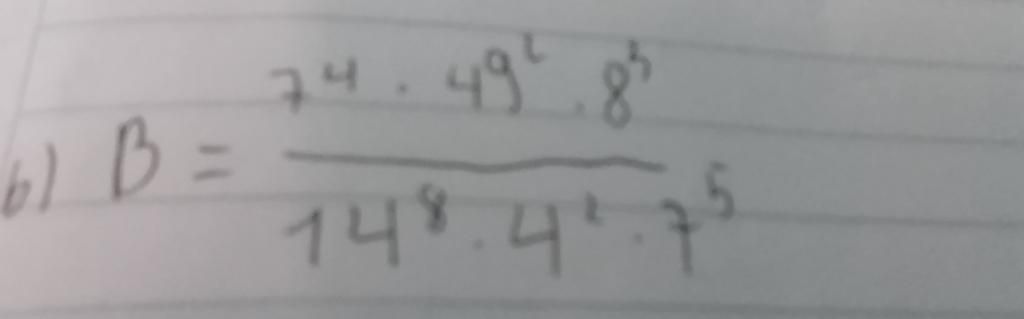 b) B = \frac{7^4 \cdot 49^2 \cdot 8^3}{14^8 \cdot 4^2 \cdot 7^5}